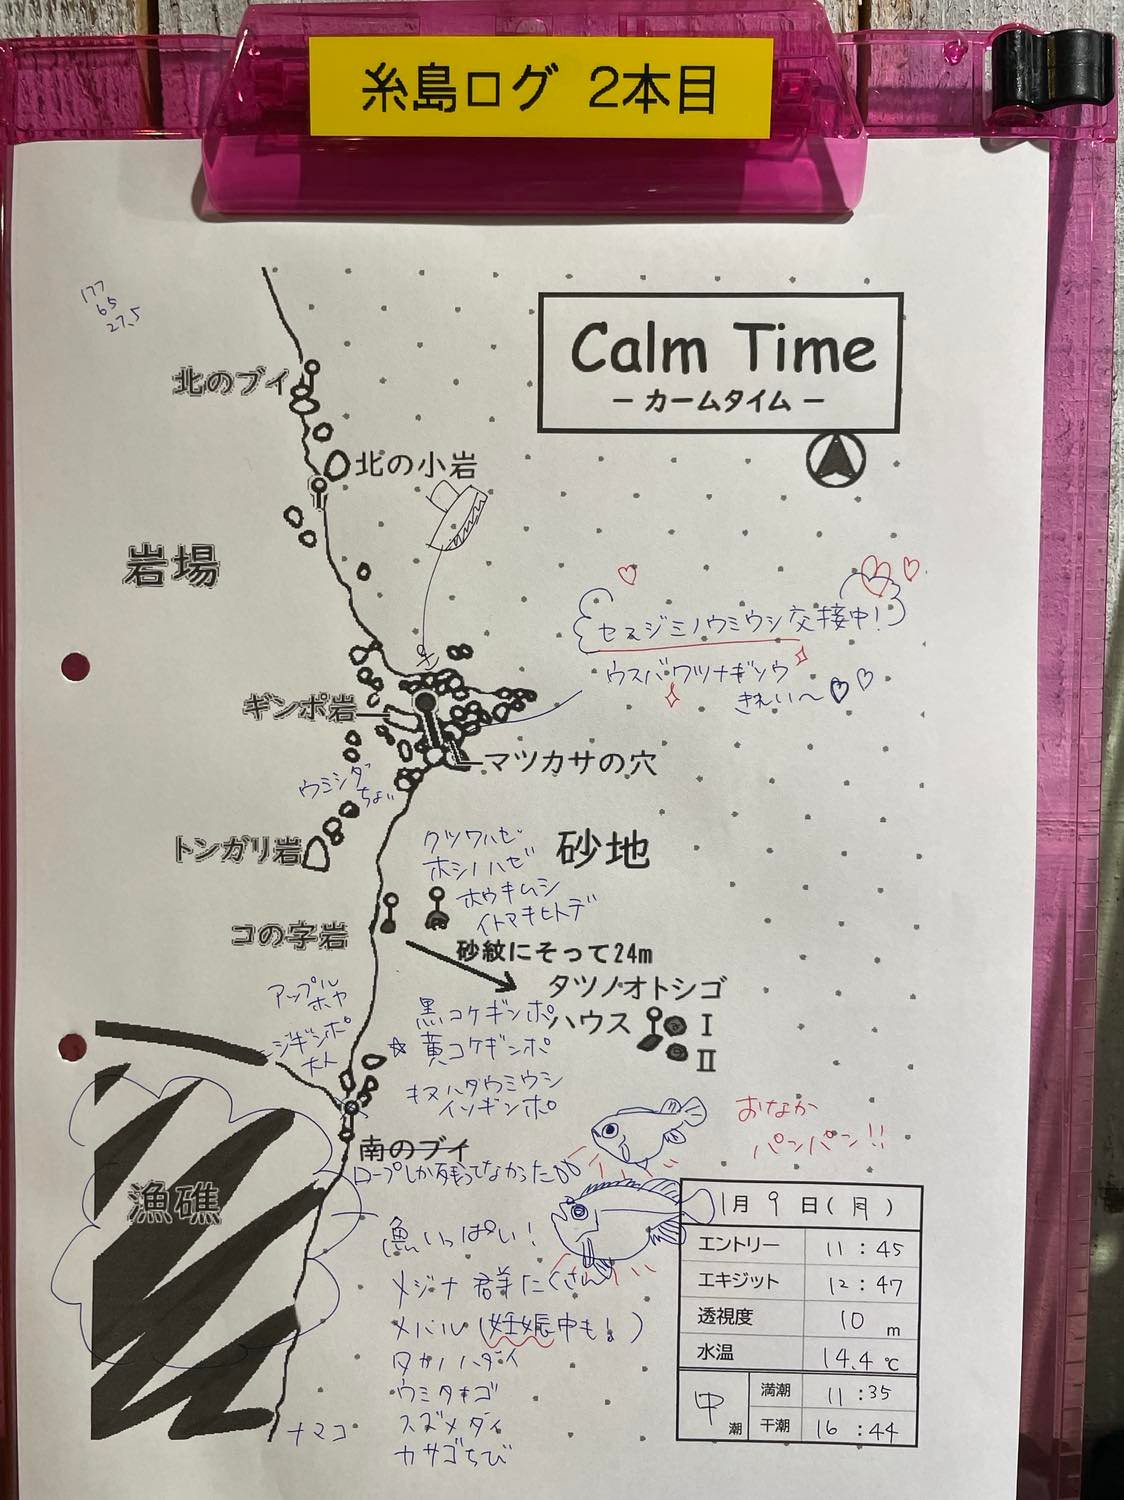 糸島ログ 2本目
177
65
27.5
Calm Time
－ カームタイム －
北のブイ
北の小岩
岩場
セスジミノウミウシ交接中!
ウスバワツナギソウ
きれい〜
ギンポ岩
マツカサの穴
ウミシダ
ちょい
トンガリ岩
クツワハゼ
ホシノハゼ
ホウキムシ
イトマキヒトデ
砂地
コの字岩
砂紋にそって24m
タツノオトシゴ
ハウス Ⅰ
Ⅱ
アップル
ホヤ
ージギンポ
大人
黒コケギンポ
☆黄コケギンポ
キヌハタウミウシ
イソギンポ
おなか
パンパン!!
南のブイ
ロープしか残ってなかった
漁礁
魚いっぱい!
メジナ 群れたくさん
メバル (妊娠中も!)
タカノハダイ
ウミタナゴ
スズメダイ
カサゴちび
ナマコ
1月 9日(月)
エントリー 11:45
エキジット 12:47
透視度 10 m
水温 14.4 ℃
中潮 満潮 11:35
干潮 16:44